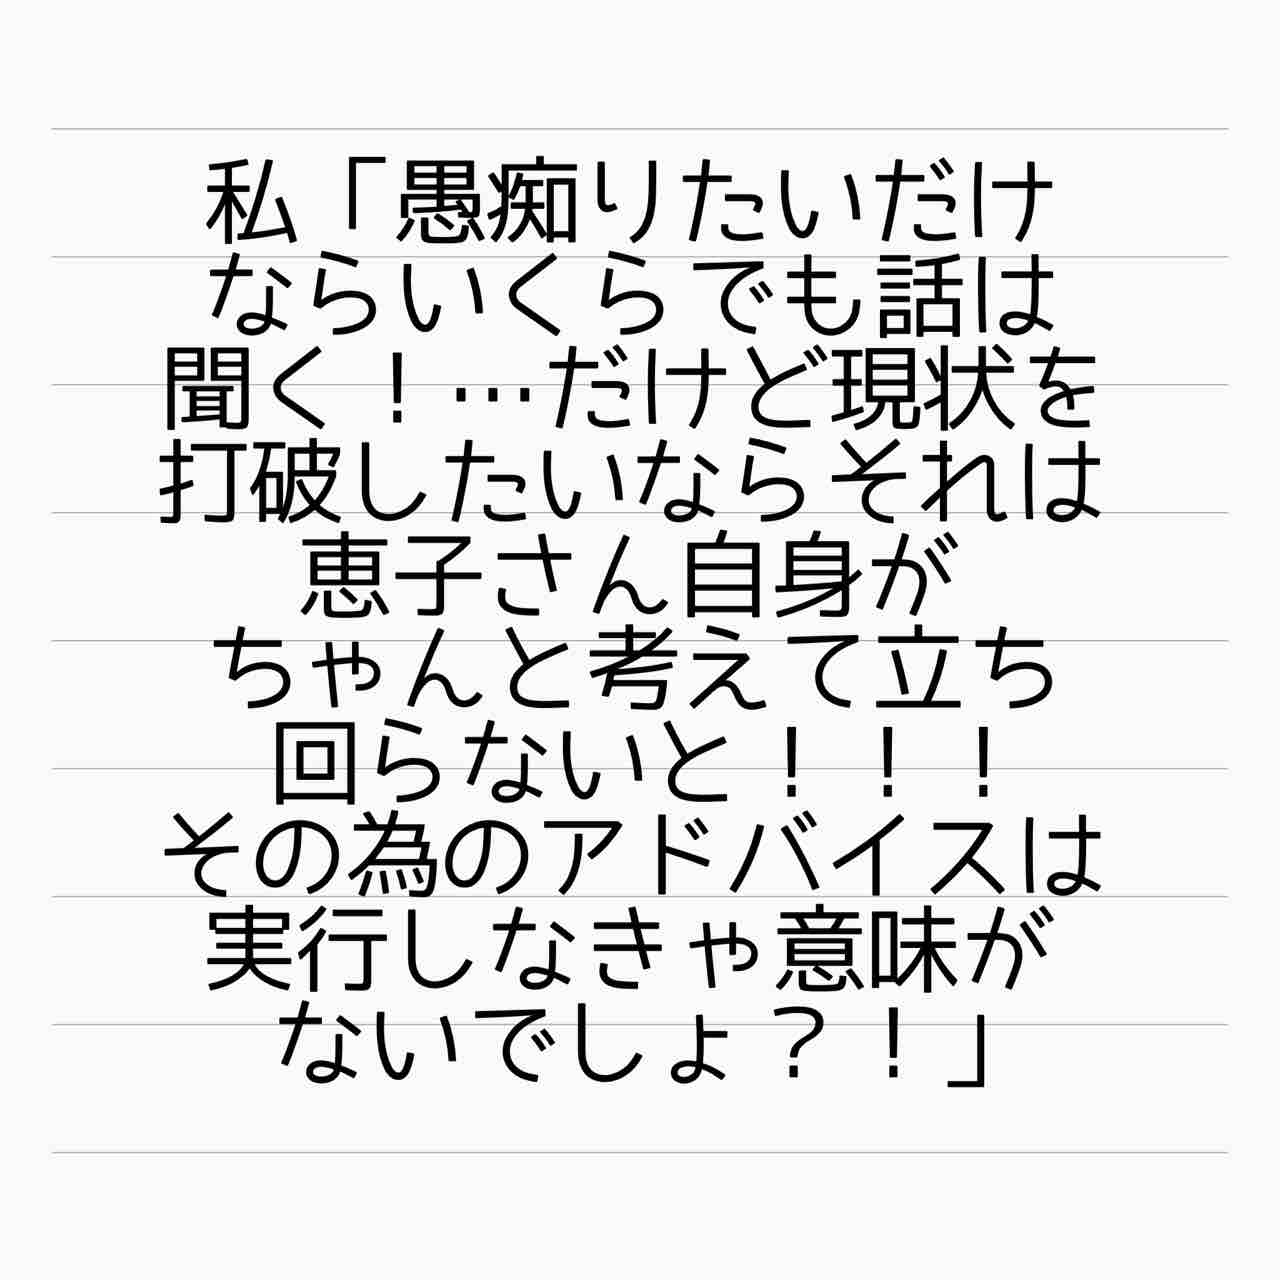 私「愚痴りたいだけ
ならいくらでも話は
聞く！…だけど現状を
打破したいならそれは
恵子さん自身が
ちゃんと考えて立ち
回らないと！！！
その為のアドバイスは
実行しなきゃ意味が
ないでしょ？！」